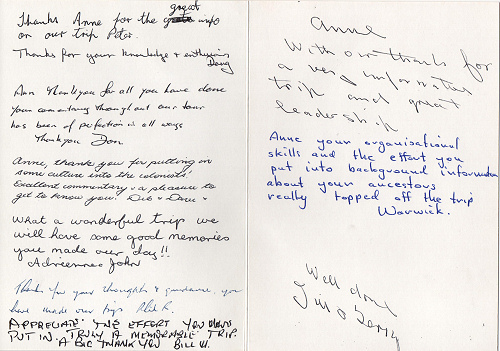 Thanks Anne for the great info
on our trip Peter.
Thanks for your knowledge & enthusiasm
Doug
Ann Thankyou for all you have done
your commentary throughout our tour
has been of perfection in all ways
Thankyou Don
Anne, thank you for putting in
some culture into the colonials!
Excellent commentary & a pleasure to
get to know you. Deb & Dave
What a wonderful trip we
will have some good memories
you made our day!!
Adrienne & John
Thank for your thoughts & guidance, you
have made our trip.
APPRECIATE THE EFFORT YOU HAVE
PUT IN. TRULY A MEMORABLE TRIP.
A BIG THANK YOU BILL W.
Anne
With our thanks for
a very informative
trip and great
leadership
Anne your organisational
skills and the effort you
put into background information
about your ancestors
really topped off the trip
Warwick.
Well done